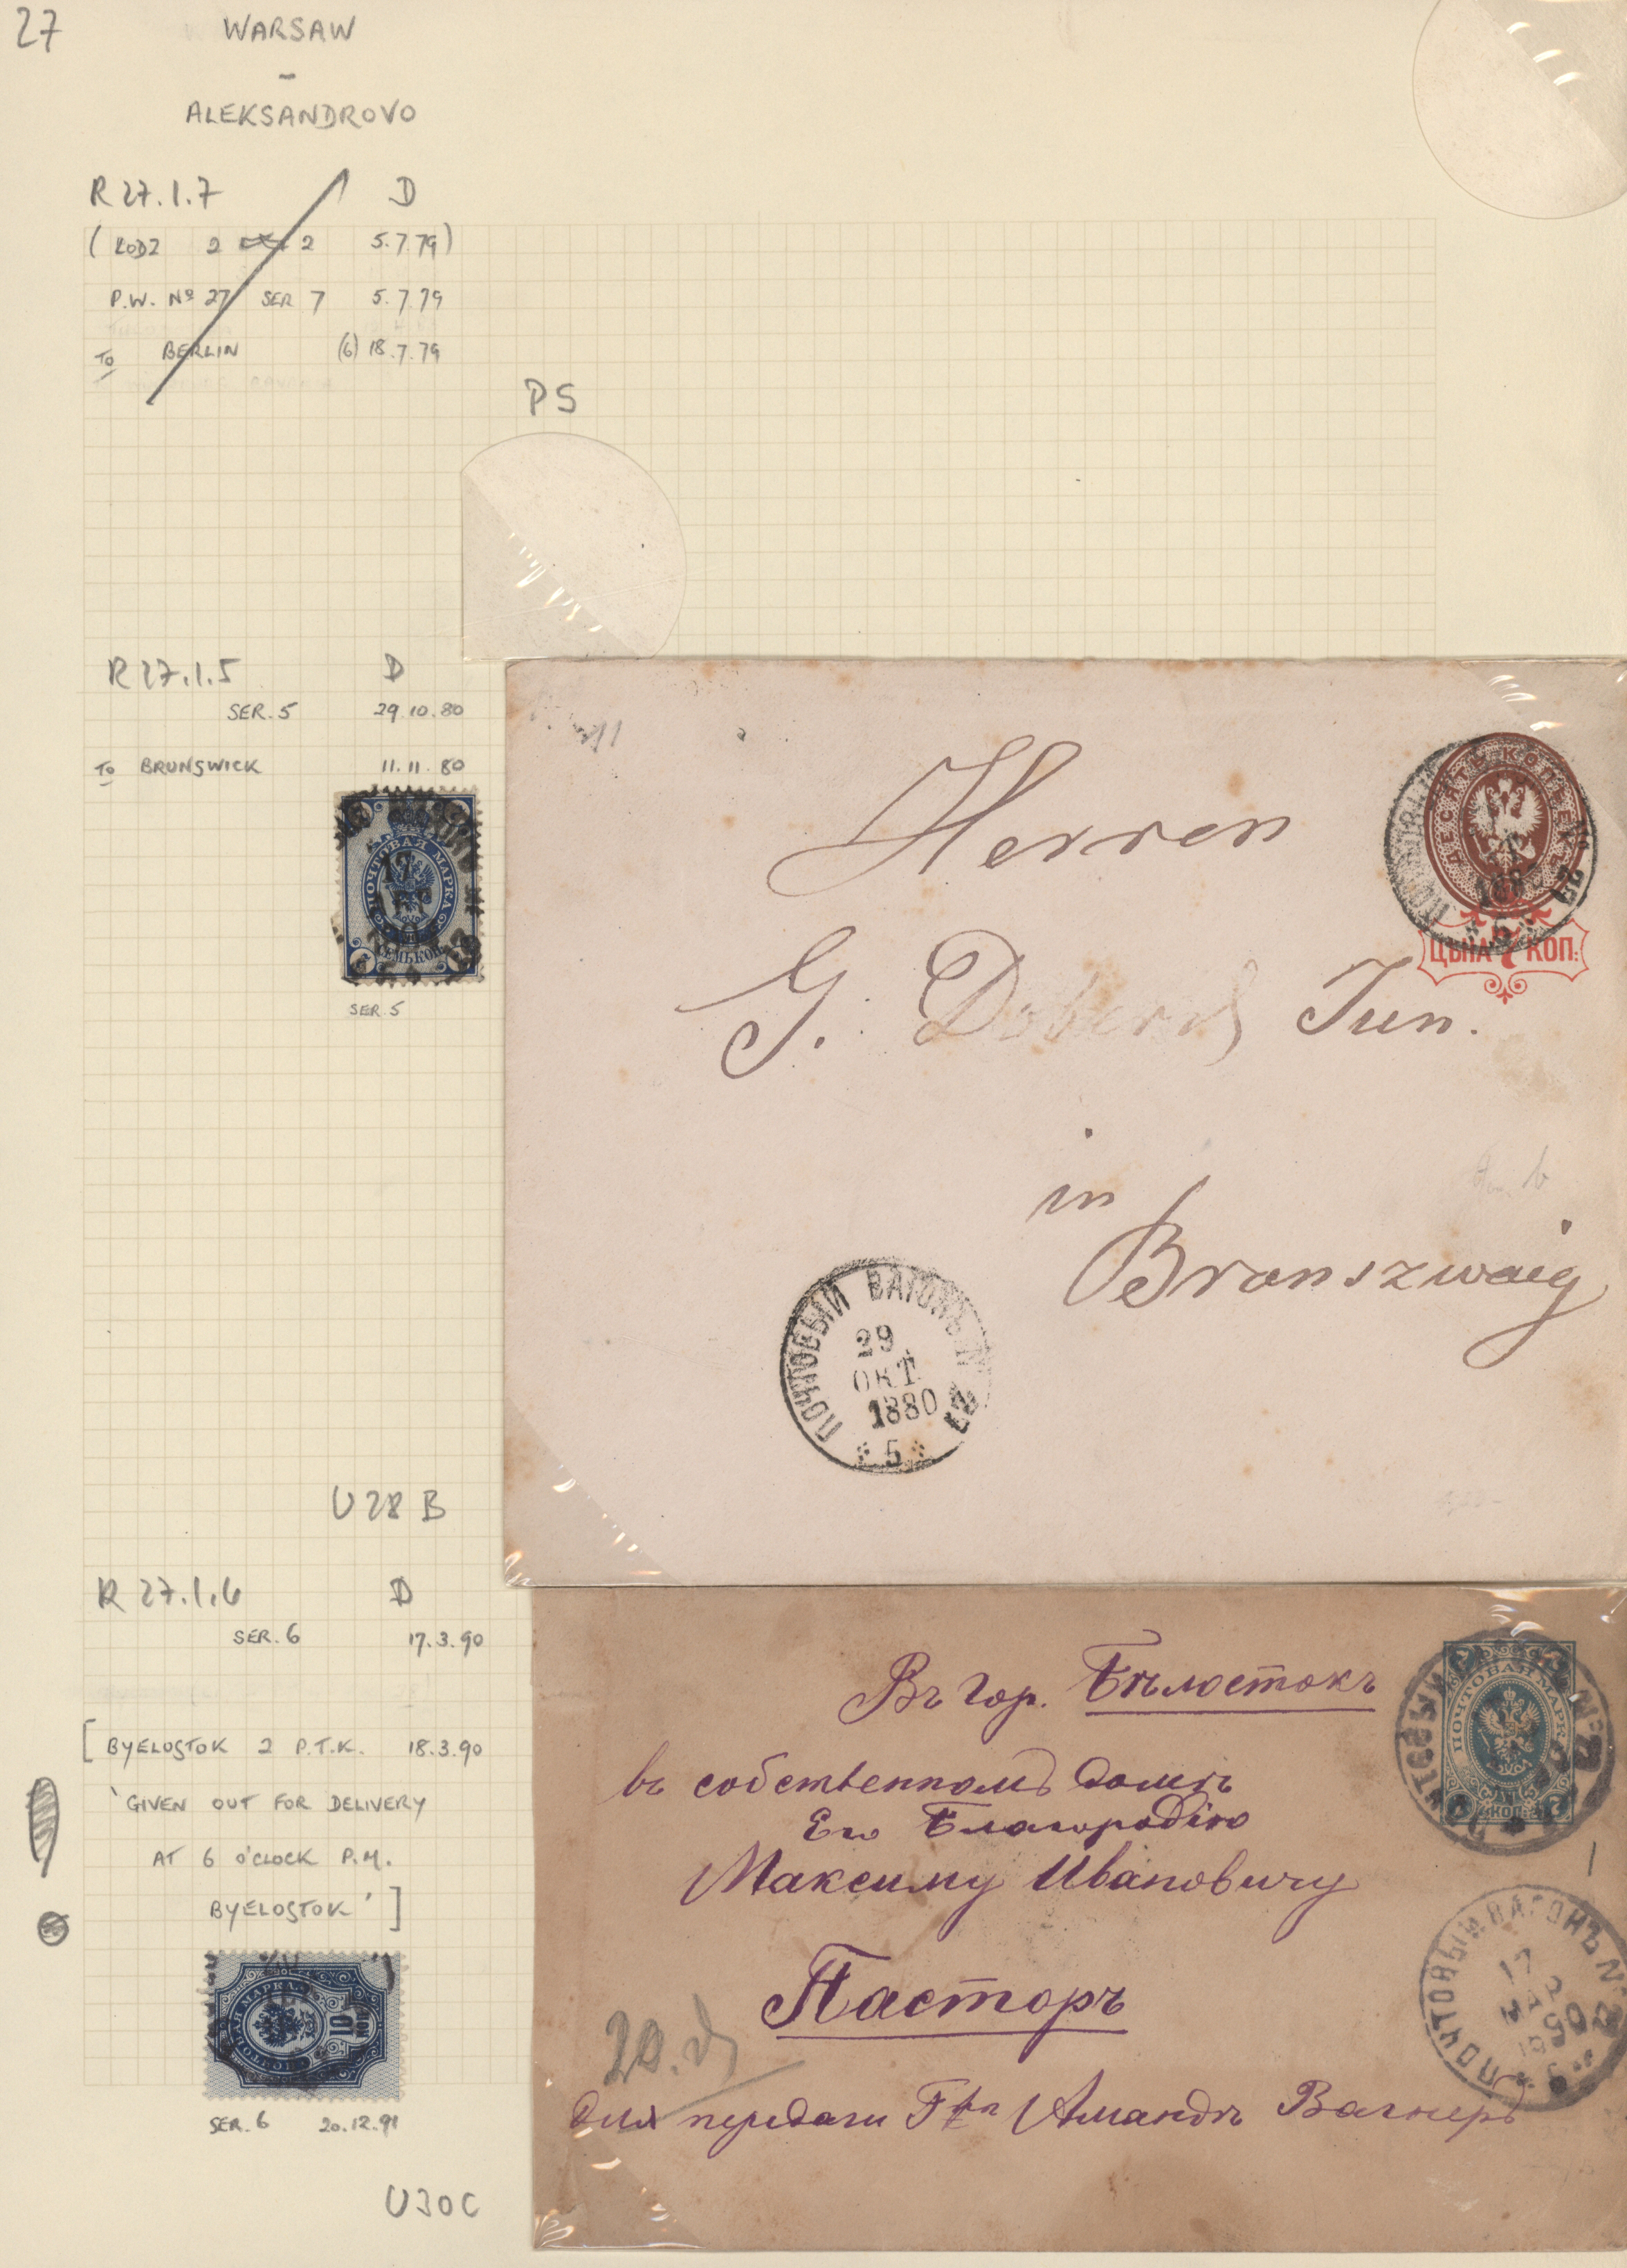 27
WARSAW
-
ALEKSANDROVO
R 27.1.7 D
(ŁODZ 2 2 5.7.79)
P.W. Nº 27 SER 7 5.7.79
TO BERLIN (6) 18.7.79
PS
R 27.1.5 D
SER. 5 29.10.80
TO BRUNSWICK 11.11.80
ПОЧТОВАЯ МАРКА
СЕМЬ КОП.
SER. 5
ДЕСЯТЬ КОПѢЕКЪ
ЦѢНА 7 КОП.
Herren
G. Jun.
in
Branszwaig
ПОЧТОВЫЙ ВАГОНЪ N 27
29
ОКТ.
1880
5
U 28 B
R 27.1.6 D
SER. 6 17.3.90
[BYELOSTOK 2 P.T.K. 18.3.90
'GIVEN OUT FOR DELIVERY
AT 6 O'CLOCK P.M.
BYELOSTOK']
ПОЧТОВАЯ МАРКА
10 КОП
SER. 6 20.12.91
U30C
Въ гор. Бѣлостокъ
въ собственномъ домѣ
Его Благородію
Максиму Ивановичу
Пасторъ
для передачи Амандѣ Вагнеръ
20.
ПОЧТОВАЯ МАРКА
КОП.
ПОЧТОВЫЙ ВАГОНЪ N 27
17
МАР
1890